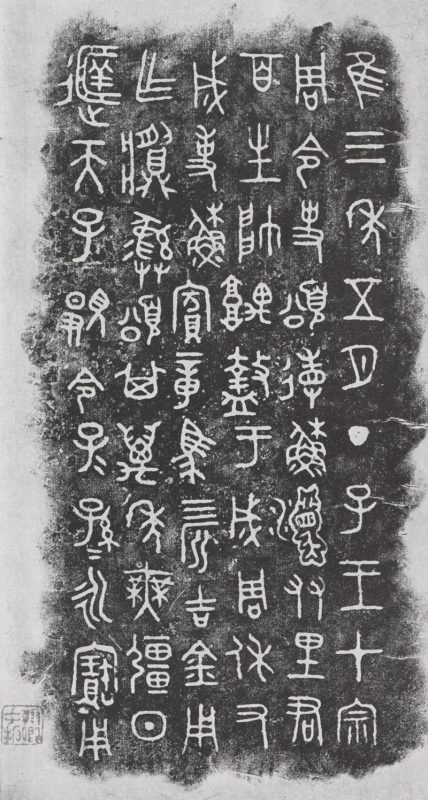 隹三年五月丁子王才宗
周令史頌省蘇友里君
百生帥盩于成周休又
成事蘇賓章馬四匹吉金用
乍䵼彝頌其萬年無疆日
天子令子孫永寶用